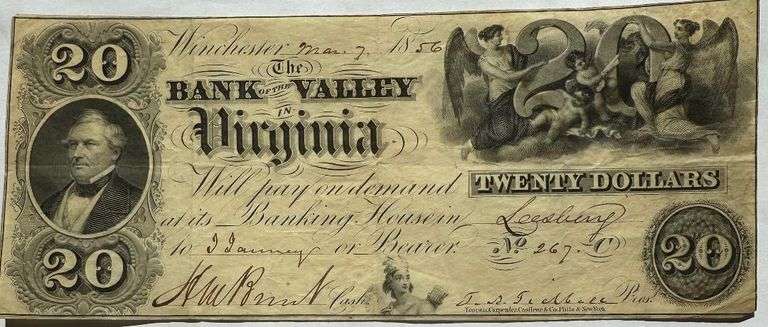 20
Winchester Mar. 7 1856
The
BANK OF THE VALLEY
IN
Virginia.
20
Will pay on demand
TWENTY DOLLARS
at its Banking House in Leesburg
to J Janney or Bearer. No 267. C
20
20
Cash.
Pres.
Toppan, Carpenter, Casilear & Co. Phila. & New York.